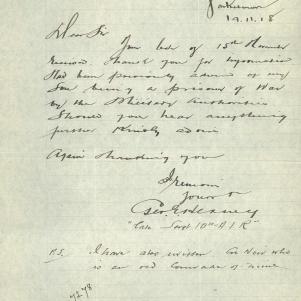 19.11.18
Dear Sir
Your letter of 15th
received thank you for information
Had been previously advised of my
Son being a prisoner of War
by the Military Authorities
Should you hear anything
further Kindly advise
Again thanking you
I remain
Yours
Geo
"late Sergt 10th A.I.R"
P.S. I have also written Co Now who
is an old Comrade of mine
7278